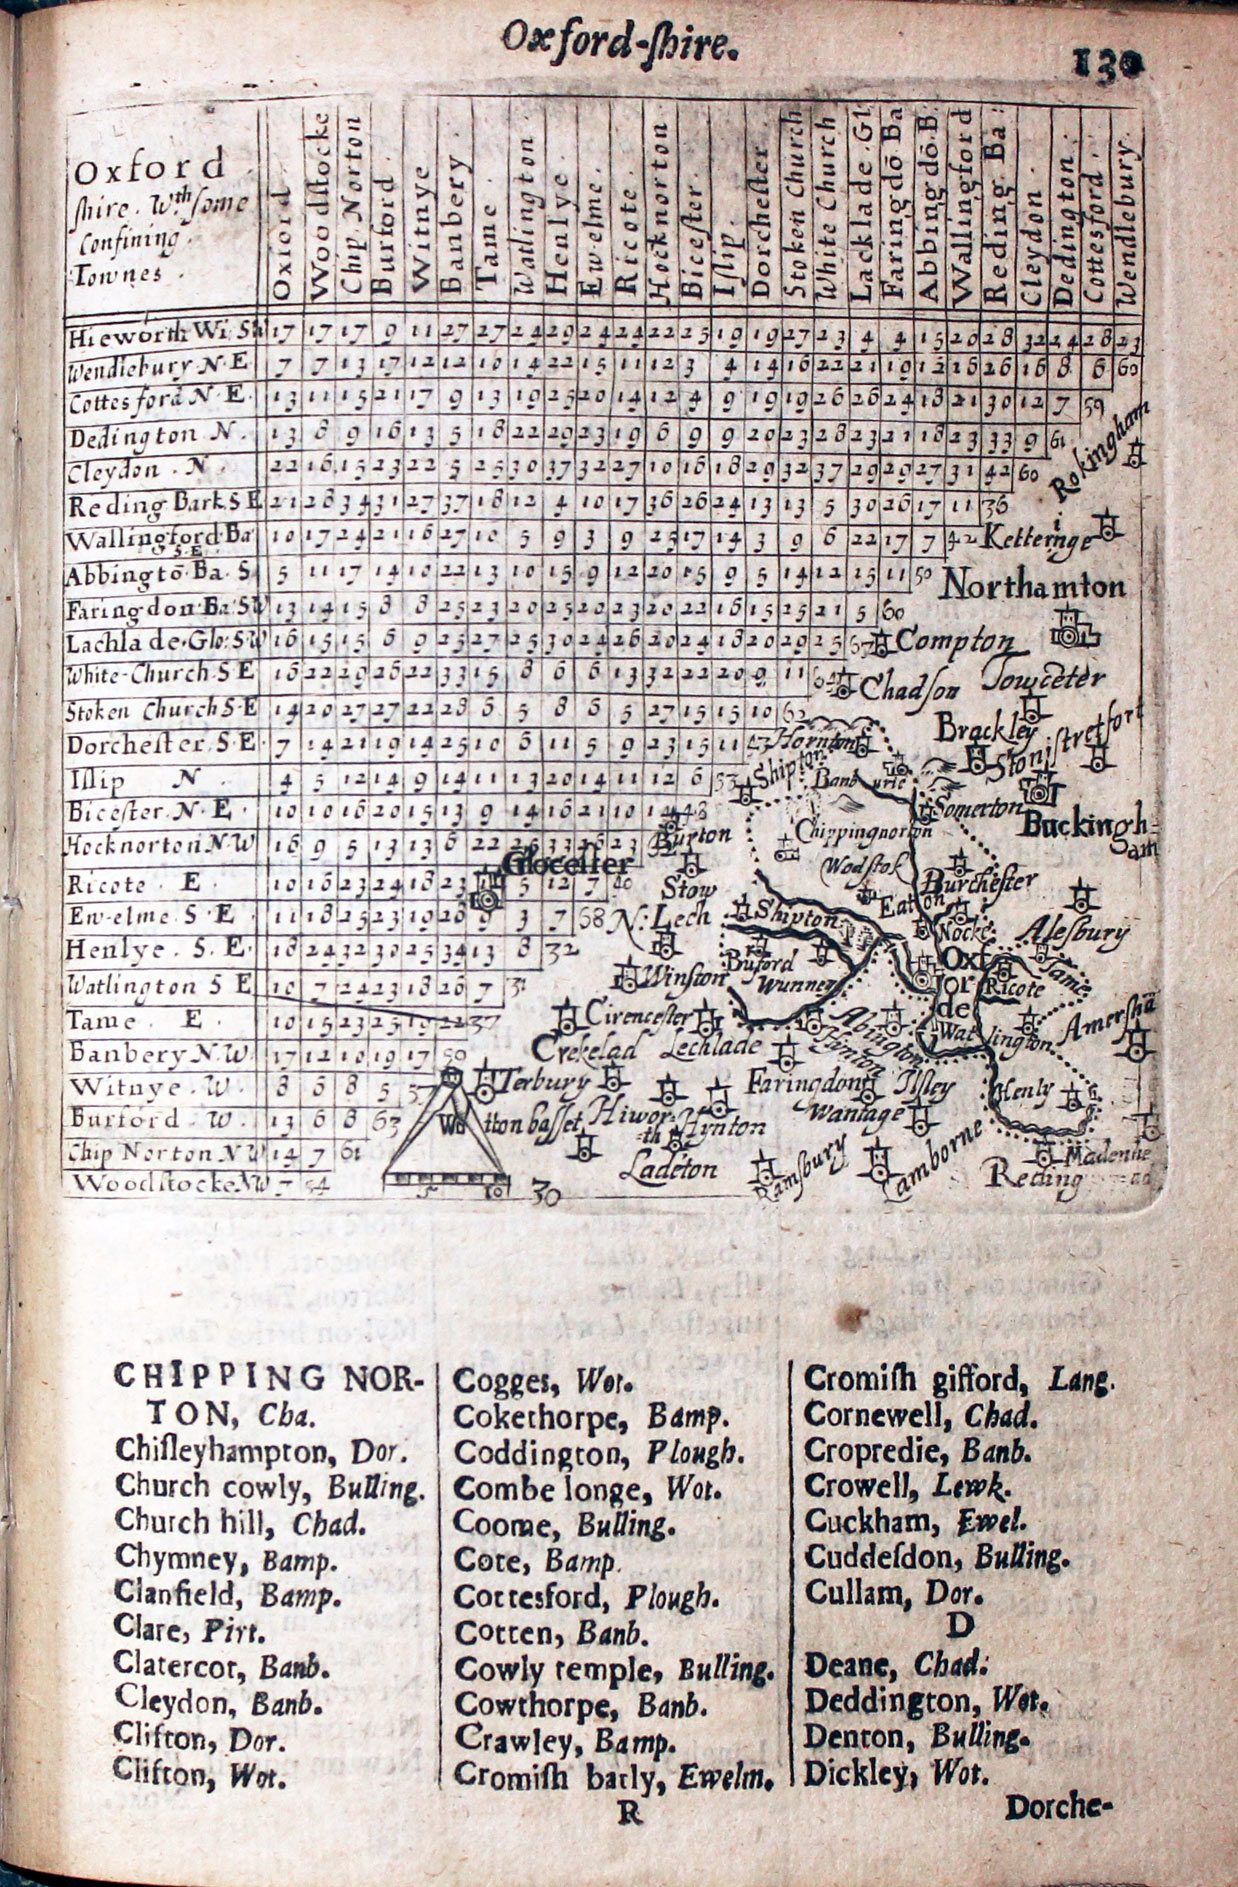 Oxford-ſhire.
130
Oxford
ſhire. Wth ſome
Confining
Townes.
Oxford
Woodſtocke
Chip. Norton
Burford.
Witnye
Banbery
Tame.
Watlington
Henlye.
Ewelme.
Ricote.
Hocknorton
Biceſter.
Iſlip.
Dorcheſter
Stoken Church
White Church
Lacklade. Gl
Faringdō Ba
Abbingdō. B:
Wallingford
Reding. Ba:
Cleydon.
Dedington.
Cottesford.
Wendlebury.
Hieworth Wi Sh 17 17 17 9 11 27 27 24 29 24 24 22 25 19 19 27 23 4 4 15 20 28 32 24 28 23
Wendlebury N. E 7 7 13 17 12 12 10 14 22 15 11 12 3 4 14 16 22 21 19 12 16 26 16 8 6 60
Cottesford N. E. 13 11 15 21 17 9 13 19 25 20 14 12 4 9 19 19 26 26 24 18 21 30 12 7 59
Dedington N. 13 8 9 16 13 5 18 22 29 23 19 6 9 9 20 23 28 23 21 18 23 33 9 61
Cleydon. N. 22 16 15 23 22 5 25 30 37 32 27 10 16 18 29 32 37 29 29 27 31 42 60
Reding Bark S E 21 28 34 31 27 37 18 12 4 10 17 36 26 24 13 13 5 30 26 17 11 36
Wallingford. Ba S. E 10 17 24 21 16 27 10 5 9 3 9 25 17 14 3 9 6 22 17 7 42
Abbingtō. Ba. S 5 11 17 14 10 22 13 10 15 9 12 20 15 9 5 14 12 15 11 50
Faringdon: Ba: SW 13 14 15 8 8 25 23 20 25 20 23 20 22 16 15 25 21 5 60
Lachlade. Glo: S W 16 15 15 6 9 25 27 25 30 24 26 20 24 18 20 29 25 67
White-Church. S E 16 22 29 26 22 33 15 8 6 6 13 32 22 20 9 11
Stoken Church S. E 14 20 27 27 22 28 6 5 8 6 5 27 15 15 10 62
Dorcheſter. S. E. 7 14 21 19 14 25 10 6 11 5 9 23 15 11 43
Iſlip N 4 5 12 14 9 14 11 13 20 14 11 12 6 53
Biceſter. N. E. 10 10 16 20 15 13 9 14 16 21 10 14 48
Hocknorton N. W 16 9 5 13 13 6 22 26 33 26 23
Ricote. E. 10 16 23 24 18 23 5 12 7 40
Ewelme S. E. 11 18 25 23 19 26 9 3 7 68
Henlye. S. E. 18 24 32 30 25 34 13 8 32
Watlington S E 10 7 24 23 18 26 7 31
Tame. E. 10 15 23 25 19 22 37
Banbery N. W. 17 12 10 19 17 50
Witnye. W. 8 6 8 5 57
Burford. W. 13 6 8 63
Chip Norton N W 14 7 61
Woodſtocke NW 7 54
Rokingham
Ketteringe
Northamton
Compton
Chadſon
Towceter
Brackley
Stoniſtretfort
Hornton
Shipton
Banburie
Somerton
Buckingham
Burton
Chippingnorton
Wodſtok
Gloceſter
Burcheſter
Stow
Eaton
N: Lech
Shipton
Nocke
Aleſbury
Oxforde
Tame
Burford
Winſton
Wunney
Ricote
Cirenceſter
Abington
Watlington
Amerſhā
Crekelad
Lechlade
Hinton
Terbury
Faringdon
Ilſley
Henly
Wotton baſſet
Hiworth
Hynton
Wantage
Ladeton
Ramſbury
Lamborne
Reding
Madenhead
5 10 30
CHIPPING NOR-
TON, Cha.
Chiſleyhampton, Dor.
Church cowly, Bulling.
Church hill, Chad.
Chymney, Bamp.
Clanfield, Bamp.
Clare, Pirt.
Clatercot, Banb.
Cleydon, Banb.
Clifton, Dor.
Clifton, Wot.
Cogges, Wot.
Cokethorpe, Bamp.
Coddington, Plough.
Combe longe, Wot.
Coome, Bulling.
Cote, Bamp.
Cottesford, Plough.
Cotten, Banb.
Cowly temple, Bulling.
Cowthorpe, Banb.
Crawley, Bamp.
Cromiſh batly, Ewelm.
Cromiſh gifford, Lang.
Cornewell, Chad.
Cropredie, Banb.
Crowell, Lewk.
Cuckham, Ewel.
Cuddeſdon, Bulling.
Cullam, Dor.
D
Deane, Chad.
Deddington, Wot.
Denton, Bulling.
Dickley, Wot.
R
Dorche-